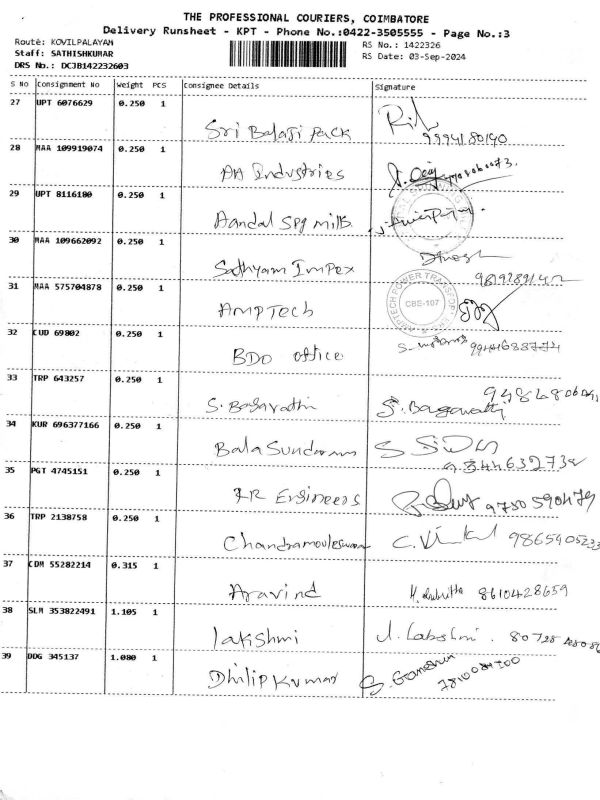 THE PROFESSIONAL COURIERS, COIMBATORE
Delivery Runsheet - KPT - Phone No.:0422-3505555 - Page No.:3
Route: KOVILPALAYAM
RS No.: 1422326
Staff: SATHISHKUMAR
RS Date: 03-Sep-2024
DRS No.: DCJB142232603
S No Consignment No Weight PCS Consignee Details Signature
27 UPT 6076629 0.250 1
Sri Balaji Pack 9994180140
28 MAA 109919074 0.250 1
AA Industries
29 UPT 8116180 0.250 1
Aandal Spg mills
30 MAA 109662092 0.250 1
Sathyam Impex Dinesh
31 MAA 575704878 0.250 1
AMPTECH POWER TRANSPORT
CBE-107
AMPTech
32 CUD 69802 0.250 1
BDO office
33 TRP 643257 0.250 1
S. Bagavathi S. Bagavathi
34 KUR 696377166 0.250 1
Bala Sundaram
35 PGT 4745151 0.250 1
RR Engineers 9750590479
36 TRP 2138758 0.250 1
Chandramouleswaran 9865905223
37 CDM 55282214 0.315 1
Aravind 8610428659
38 SLM 353822491 1.105 1
lakshmi J. Lakshmi
39 DDG 345137 1.080 1
Dhilip Kumar